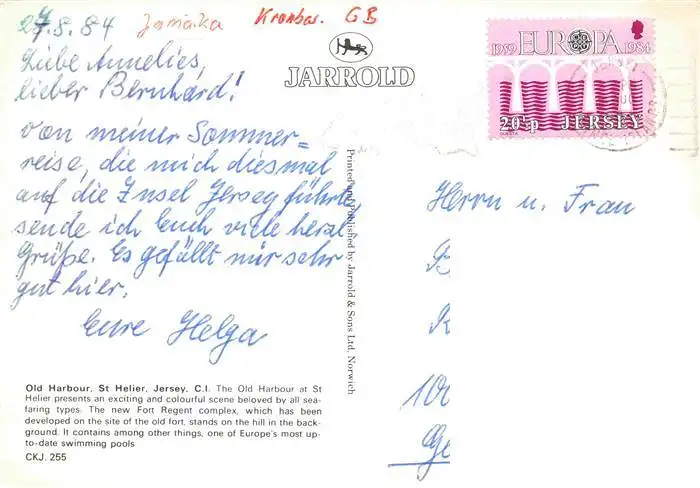 27.8.84
Jamaika
GB
Liebe Annelies,
lieber Bernhard!
von meiner Sommer=
reise, die mich diesmal
auf die Insel Jersey führte,
sende ich Euch viele herzl.
Grüße. Es gefällt mir sehr
gut hier.
Eure Helga
JARROLD
1959 EUROPA 1984
20½p JERSEY
Printed and Published by Jarrold & Sons Ltd, Norwich
Herrn u. Frau
Old Harbour, St Helier, Jersey, C.I. The Old Harbour at St
Helier presents an exciting and colourful scene beloved by all sea-
faring types. The new Fort Regent complex, which has been
developed on the site of the old fort, stands on the hill in the back-
ground. It contains among other things, one of Europe's most up-
to-date swimming pools
CKJ. 255